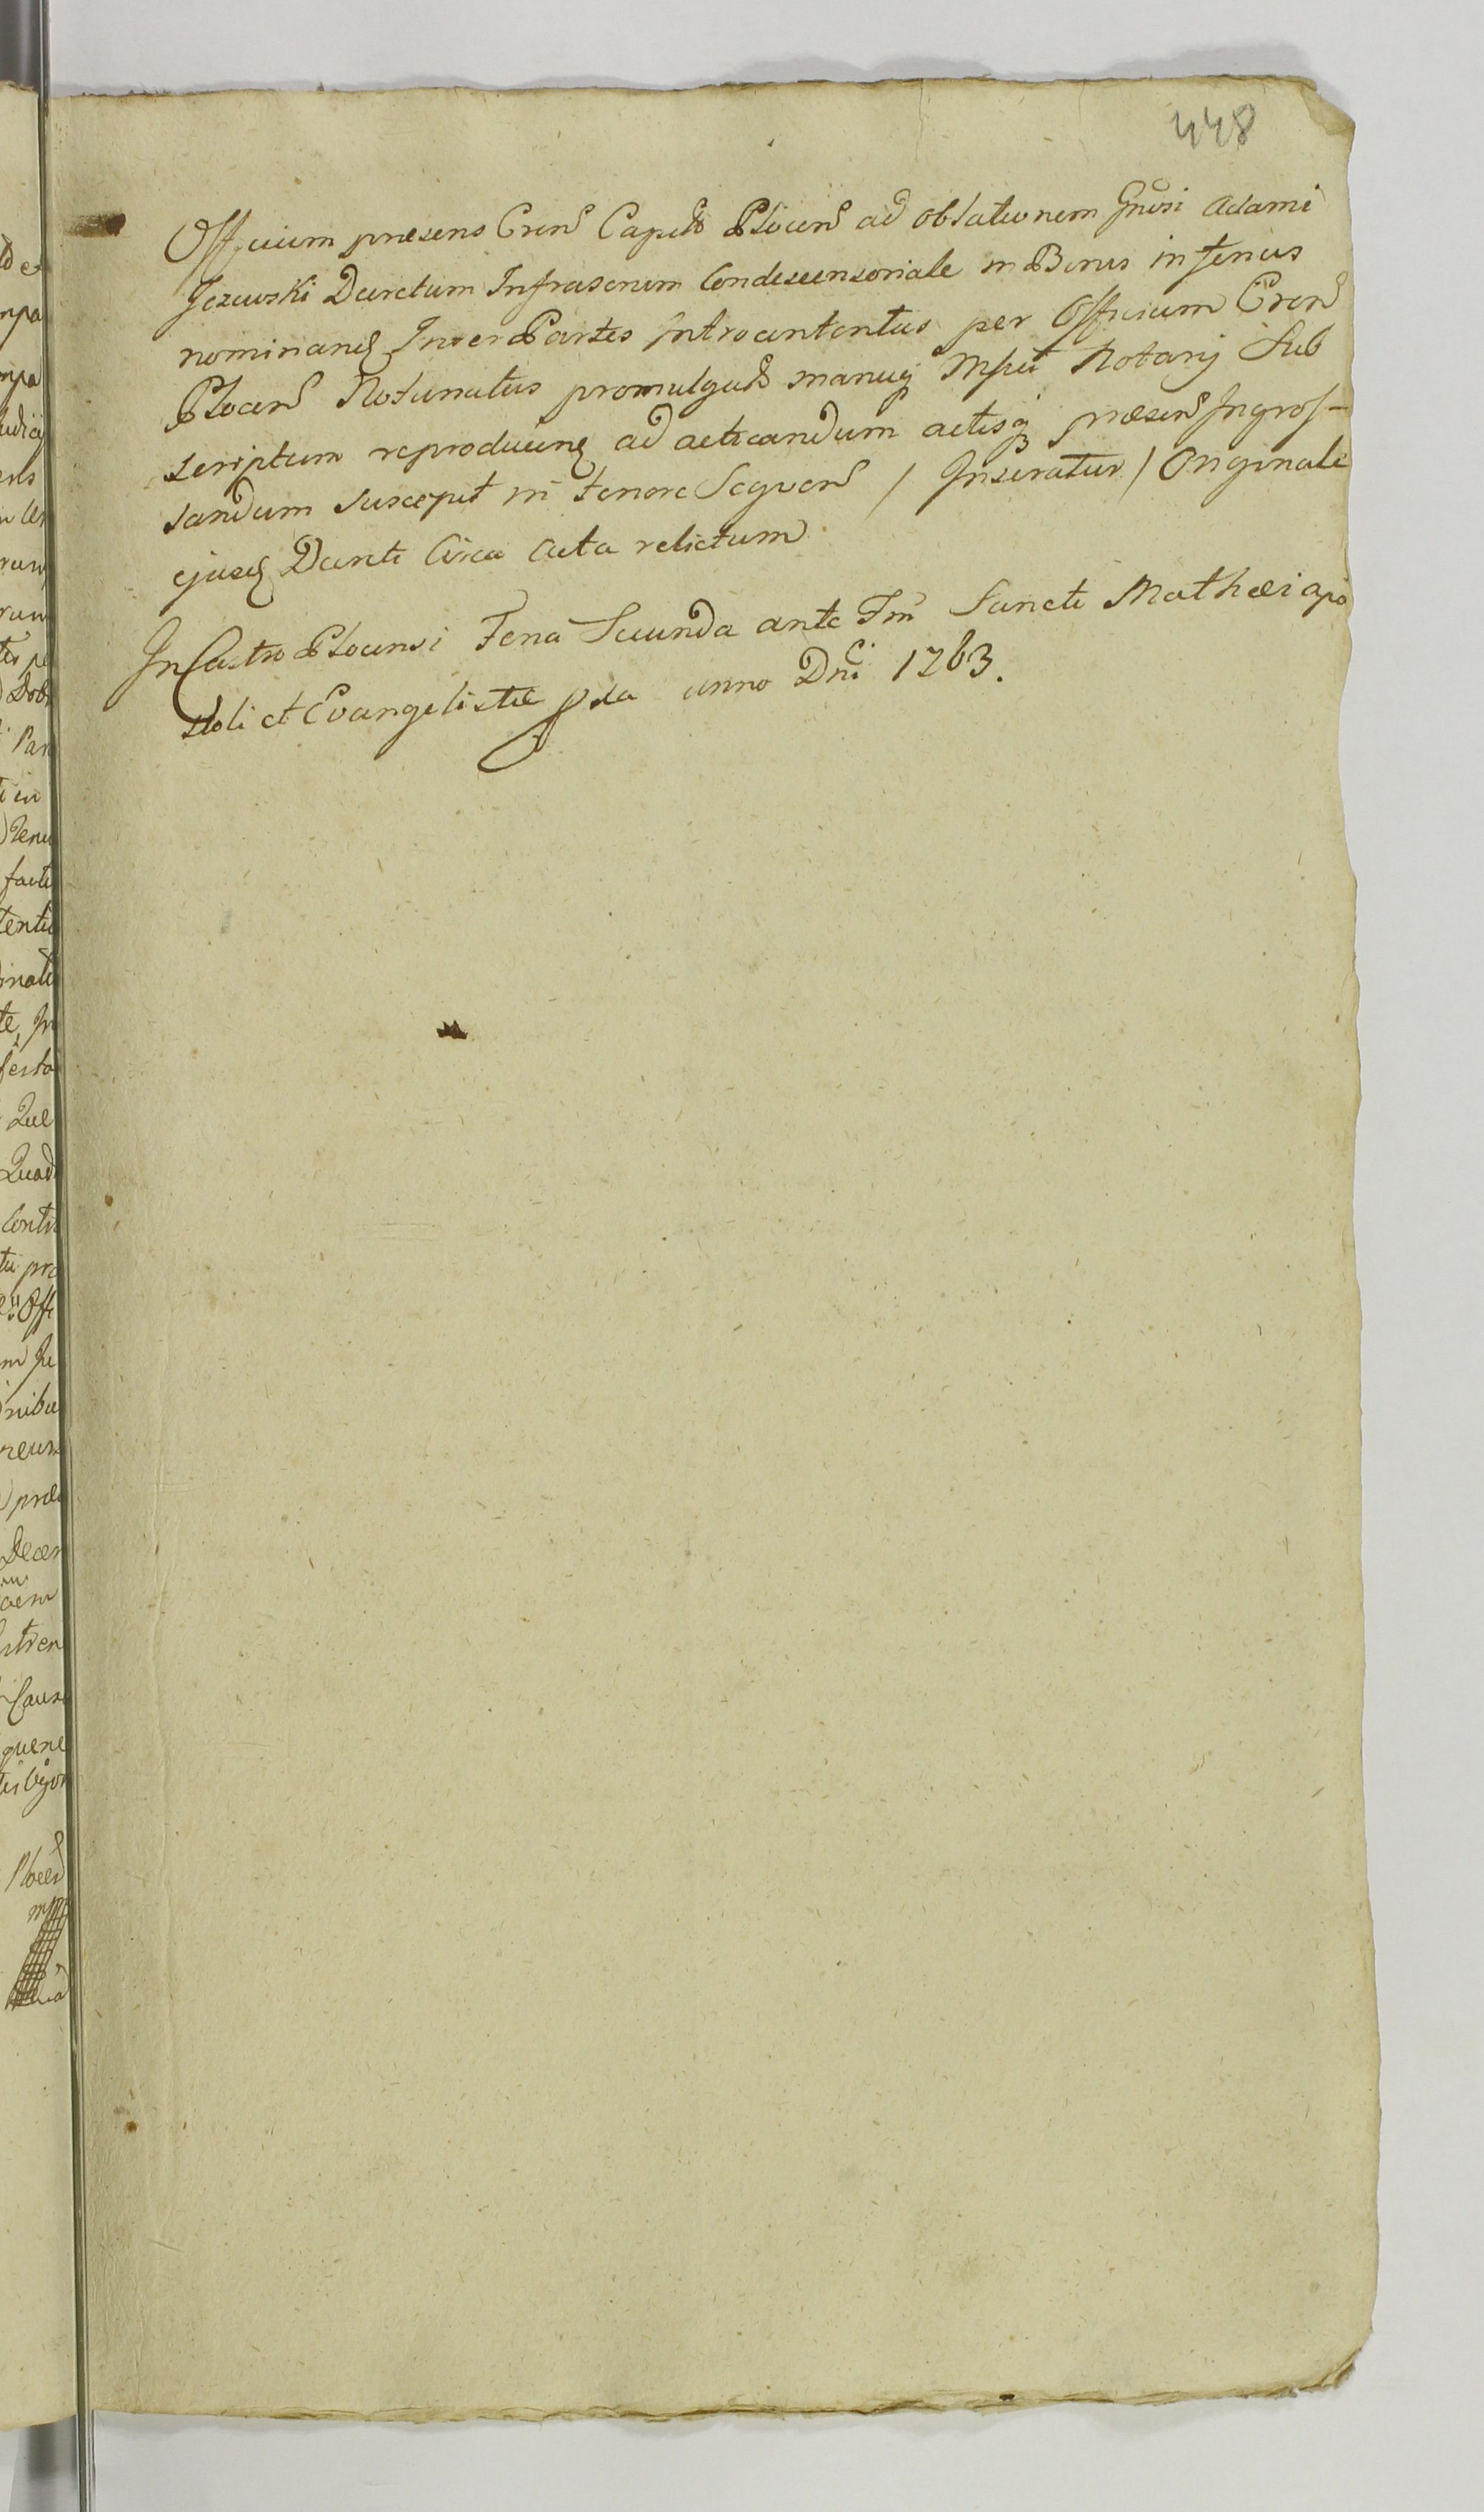 448
Officium præsens Cren Capit Plocen ad oblationem Gnosi Adami
Jezewski Decretum Infrascrum Condescensoriale in Bonis inferius
nominand Inter Partes Introcontentas per Officium Cren
Plocen Notunatus promulgat manuq Msci Notarij Sub
scriptum reproducend ad acticandum actisq præsen Ingros-
sandum suscepit in tenore Sequen / Inseratur / Originale
ejusd Danti Circa Acta relictum
In Castro Plocensi Feria Secunda ante Fm Sancti Mathæi Apo
stoli et Evangelistæ pxa anno Dni 1763.